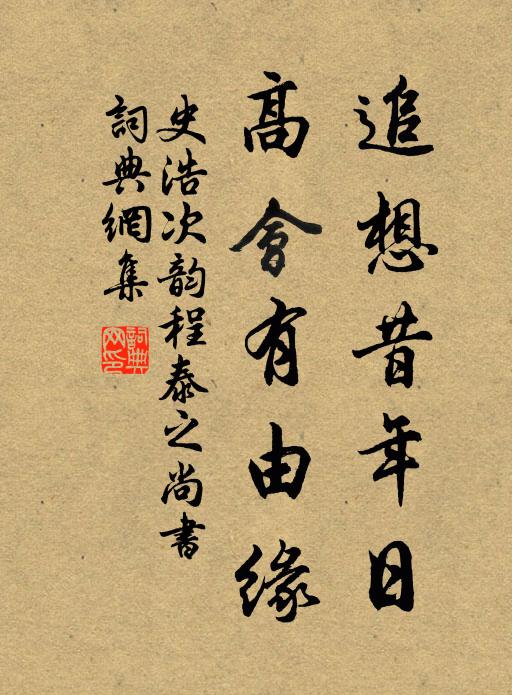 追想昔年日
高會有由緣
史浩次韵程泰之尚書
詞典網集
詞典网印